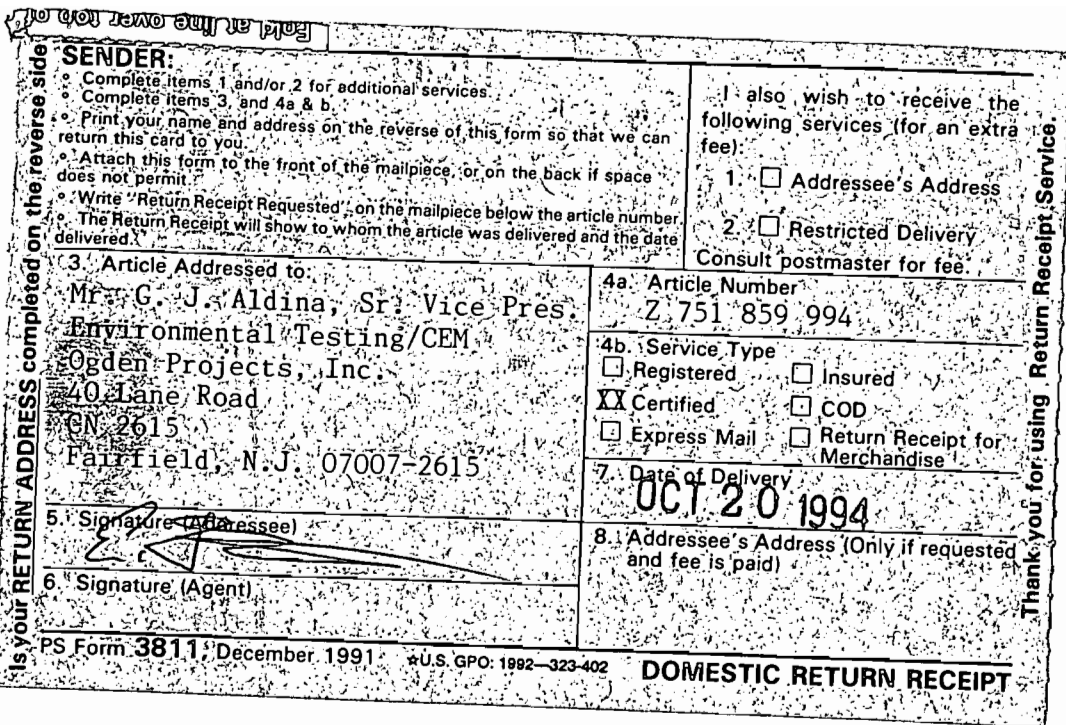 Fold at line over top of
Is your RETURN ADDRESS completed on the reverse side
SENDER:
• Complete items 1 and/or 2 for additional services.
• Complete items 3, and 4a & b.
• Print your name and address on the reverse of this form so that we can
return this card to you.
• Attach this form to the front of the mailpiece, or on the back if space
does not permit.
• Write "Return Receipt Requested" on the mailpiece below the article number.
• The Return Receipt will show to whom the article was delivered and the date
delivered.
I also wish to receive the
following services (for an extra
fee):
1. ☐ Addressee's Address
2. ☐ Restricted Delivery
Consult postmaster for fee.
3. Article Addressed to:
Mr. G. J. Aldina, Sr. Vice Pres.
Environmental Testing/CEM
Ogden Projects, Inc.
40 Lane Road
CN 2615
Fairfield, N.J. 07007-2615
4a. Article Number
Z 751 859 994
4b. Service Type
☐ Registered ☐ Insured
XX Certified ☐ COD
☐ Express Mail ☐ Return Receipt for
Merchandise
7. Date of Delivery
OCT 20 1994
5. Signature (Addressee)
6. Signature (Agent)
8. Addressee's Address (Only if requested
and fee is paid)
PS Form 3811, December 1991 ☆U.S. GPO: 1992—323-402 DOMESTIC RETURN RECEIPT
Thank you for using Return Receipt Service.